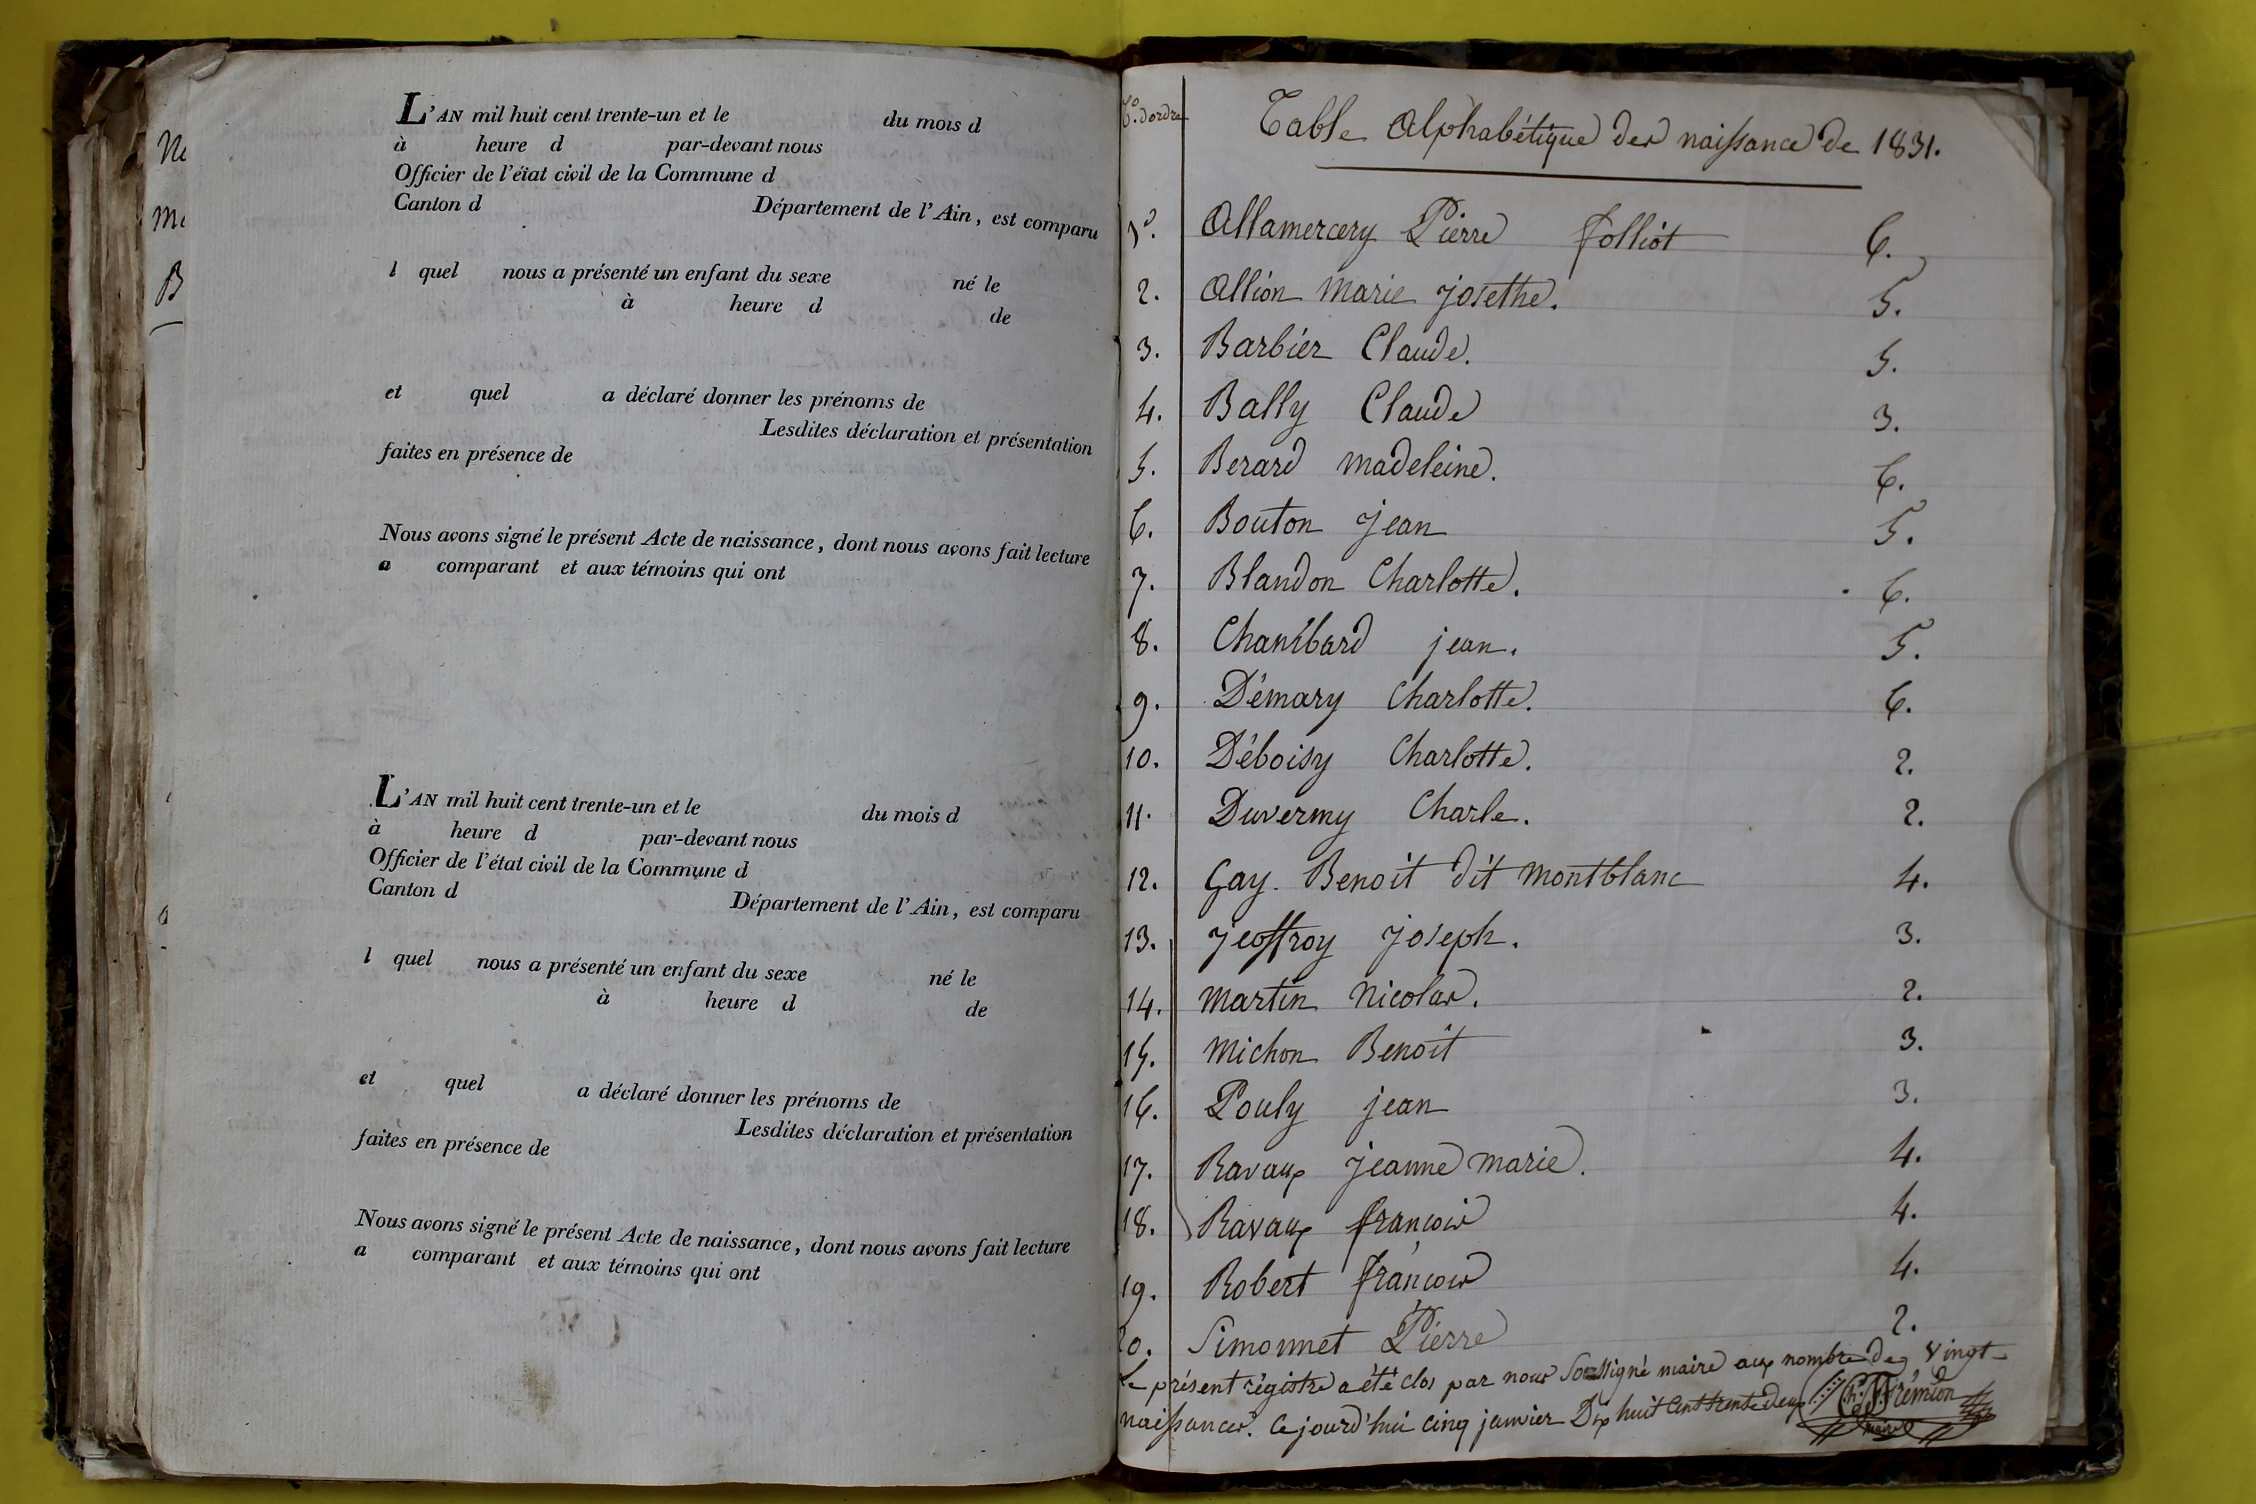 Ne
Me
B
L'AN mil huit cent trente-un et le du mois d
à heure d par-devant nous
Officier de l'état civil de la Commune d
Canton d Département de l'Ain, est comparu
l quel nous a présenté un enfant du sexe né le
à heure d de
et quel a déclaré donner les prénoms de
Lesdites déclaration et présentation
faites en présence de
Nous avons signé le présent Acte de naissance, dont nous avons fait lecture
a comparant et aux témoins qui ont
L'AN mil huit cent trente-un et le du mois d
à heure d par-devant nous
Officier de l'état civil de la Commune d
Canton d Département de l'Ain, est comparu
l quel nous a présenté un enfant du sexe né le
à heure d de
et quel a déclaré donner les prénoms de
Lesdites déclaration et présentation
faites en présence de
Nous avons signé le présent Acte de naissance, dont nous avons fait lecture
a comparant et aux témoins qui ont
dordre Table Alphabétique des naissance de 1831.
1º. Allamercery Pierre folliot 6.
2. Allion marie josethe. 5.
3. Barbier Claude. 5.
4. Bally Claude 3.
5. Berard madeleine. 6.
6. Bouton jean 5.
7. Blandon Charlotte. 6.
8. Chanibard jean. 5.
9. Démary Charlotte. 6.
10. Déboisy Charlotte. 2.
11. Duvermy Charle. 2.
12. Gay. Benoit dit montblanc 4.
13. jeoffroy joseph. 3.
14. martin nicolas. 2.
15. michon Benoit 3.
16. Pouly jean 3.
17. Ravaux jeanne marie. 4.
18. Ravaux françois 4.
19. Robert françois 4.
20. Simonnet Pierre 2.
Le présent régistre a été clos par nous Soussigné maire aux nombre de vingt
naissances. Ce jourd'hui cinq janvier Dix huit Cent trente deux Frémion
maire